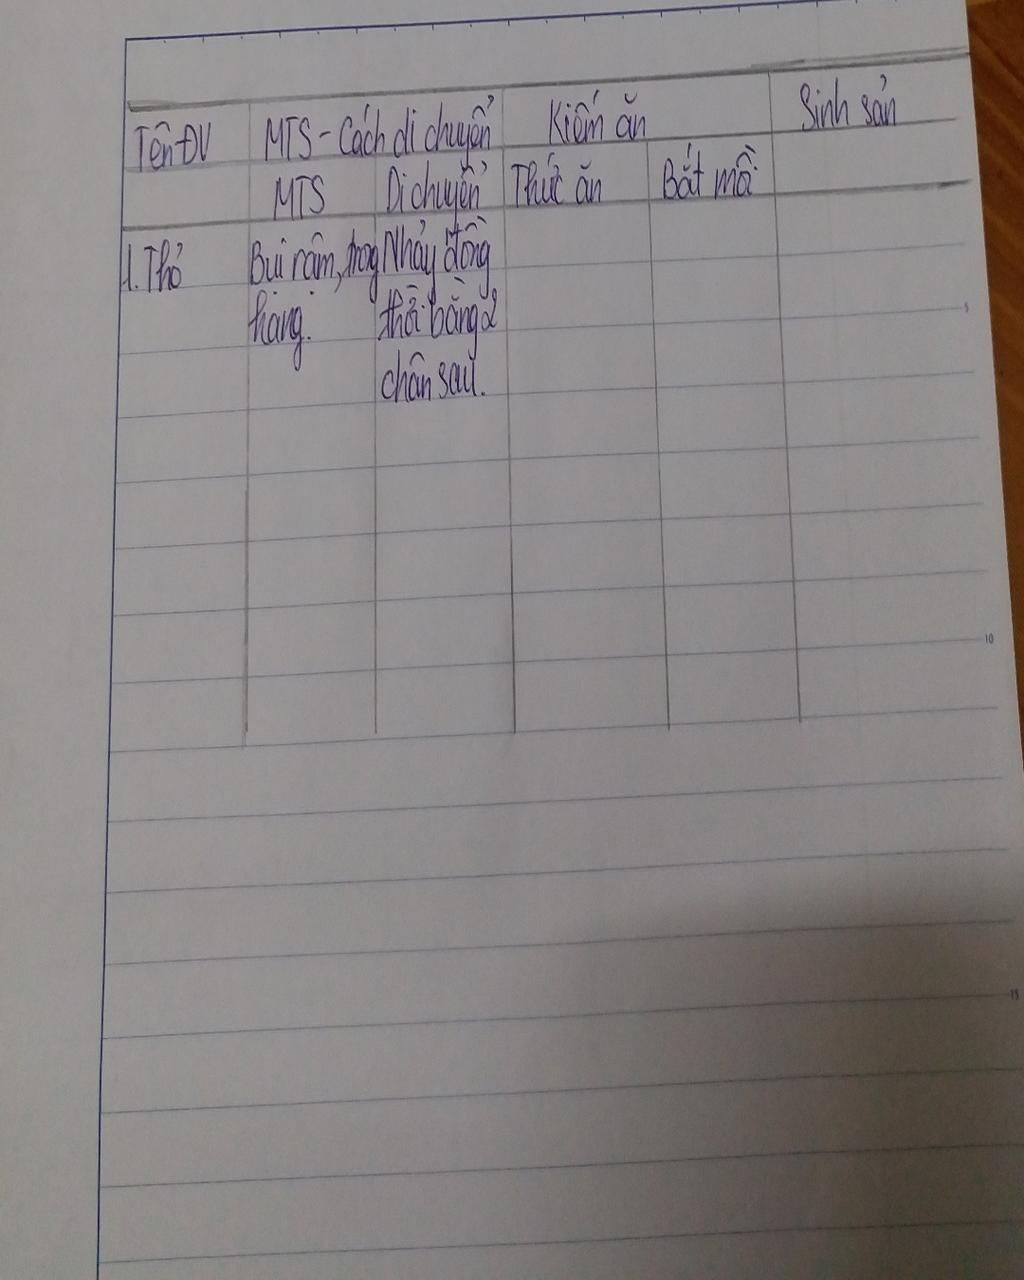 Tên ĐV MTS - Cách di chuyển Kiếm ăn Sinh sản
MTS Di chuyển Thức ăn Bắt mồi
1. Thỏ Bụi rậm, trog Nhảy đồng
hang. thời bằng 2
chân sau.
5
10
15